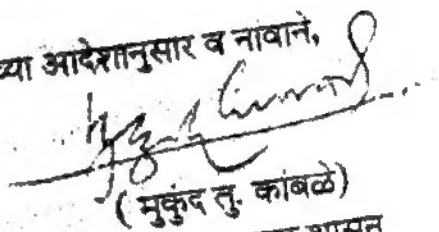 च्या आदेशानुसार व नावाने,
( मुकुंद तु. कांबळे)
शासन